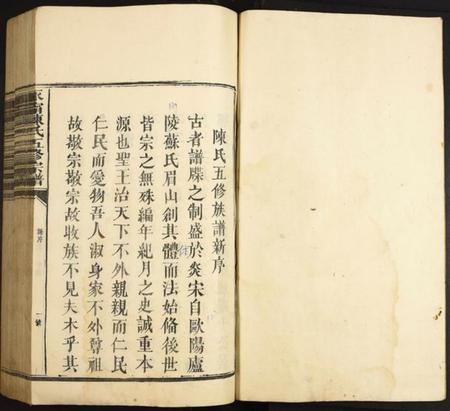 陳氏五修族譜新序
古者譜牒之制盛於炎宋自歐陽廬
陵蘇氏眉山創其體而法始脩後世
皆宗之無殊編年紀月之史誠重本
源也聖王治天下不外親親而仁民
仁民而愛物吾人淑身家不外尊祖
故敬宗敬宗故收族不見夫木乎其
陳氏五修
譜